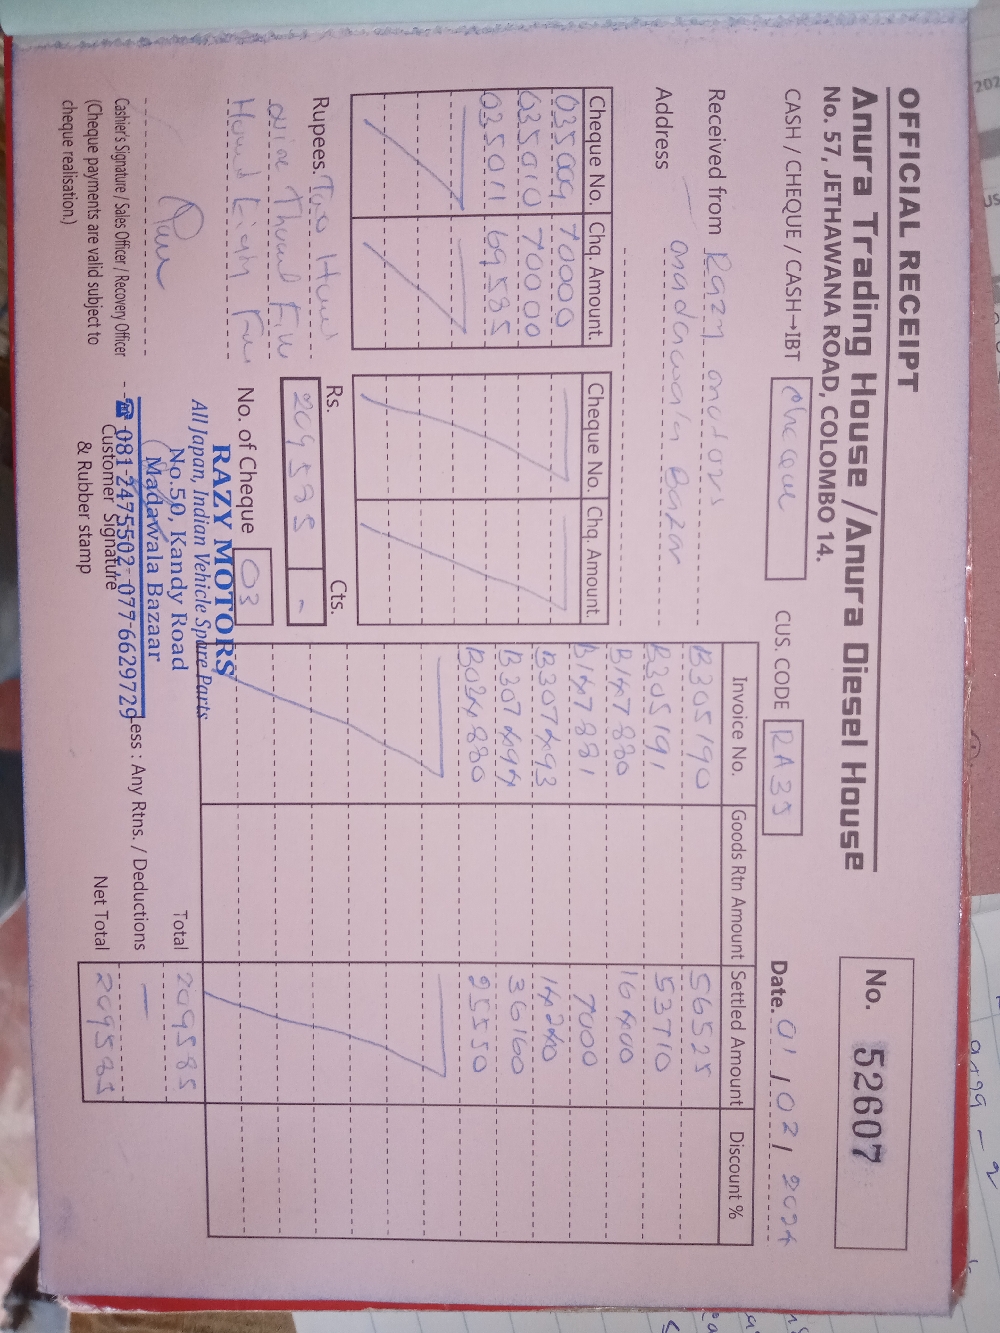 OFFICIAL RECEIPT
Anura Trading House / Anura Diesel House
No. 57, JETHAWANA ROAD, COLOMBO 14.
No. 52607
CASH / CHEQUE / CASH→IBT Cheque
CUS. CODE RA35
Date. 01 / 02 / 2024
Received from Razy motors
Address Madawala Bazar
Cheque No. Chq. Amount. Cheque No. Chq. Amount.
035009 70000
035010 70000
035011 69585
Invoice No. Goods Rtn Amount Settled Amount Discount %
B305190 56525
B305191 53710
B147880 16400
B147881 7000
B307493 14240
B307494 36160
B024880 25550
Rupees. Two Hund
nine Thousand Five
Hund Eighty Five
Rs. Cts.
209585 -
No. of Cheque 03
RAZY MOTORS
All Japan, Indian Vehicle Spare Parts
No.50, Kandy Road
Madawala Bazaar
☎ 081-2475502, 077 6629729
Total 209585
Less : Any Rtns. / Deductions —
Net Total 209585
Cashier's Signature / Sales Officer / Recovery Officer
(Cheque payments are valid subject to
cheque realisation.)
Customer Signature
& Rubber stamp